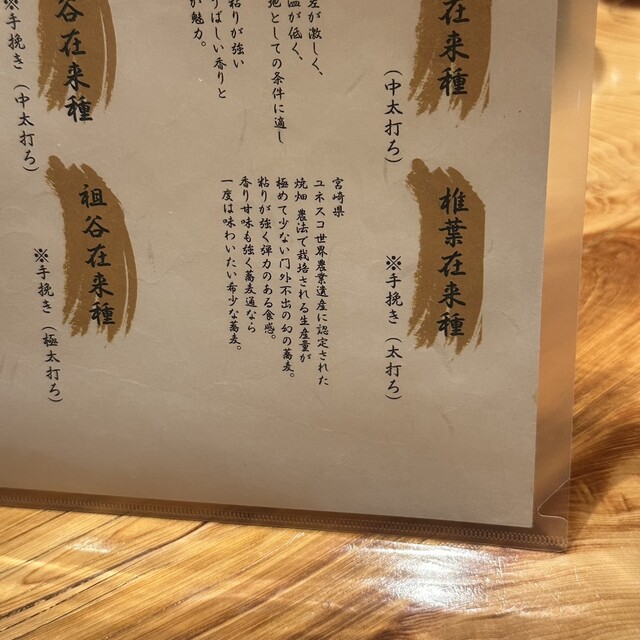 在来種
(中太打ち)
差が激しく、
温が低く、
地としての条件に適し
粘りが強い
うばしい香りと
が魅力。
谷在来種
※手挽き(中太打ち)
椎葉在来種
※手挽き(太打ち)
宮崎県
ユネスコ世界農業遺産に認定された
焼畑農法で栽培される生産量が
極めて少ない門外不出の幻の蕎麦。
粘りが強く弾力のある食感。
香り甘味も強く蕎麦通なら
一度は味わいたい希少な蕎麦。
祖谷在来種
※手挽き(極太打ち)